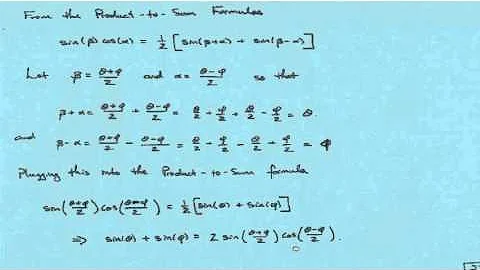 From the Product-to-Sum Formulas
sin(β)cos(α) = 1/2 [sin(β+α) + sin(β-α)]
Let β = (θ+φ)/2 and α = (θ-φ)/2 so that
β+α = (θ+φ)/2 + (θ-φ)/2 = θ/2 + φ/2 + θ/2 - φ/2 = θ.
and
β-α = (θ+φ)/2 - (θ-φ)/2 = θ/2 + φ/2 - θ/2 + φ/2 = φ
Plugging this into the Product-to-Sum formula
sin((θ+φ)/2) cos((θ-φ)/2) = 1/2 [sin(θ) + sin(φ)]
⇒ sin(θ) + sin(φ) = 2 sin((θ+φ)/2) cos((θ-φ)/2).